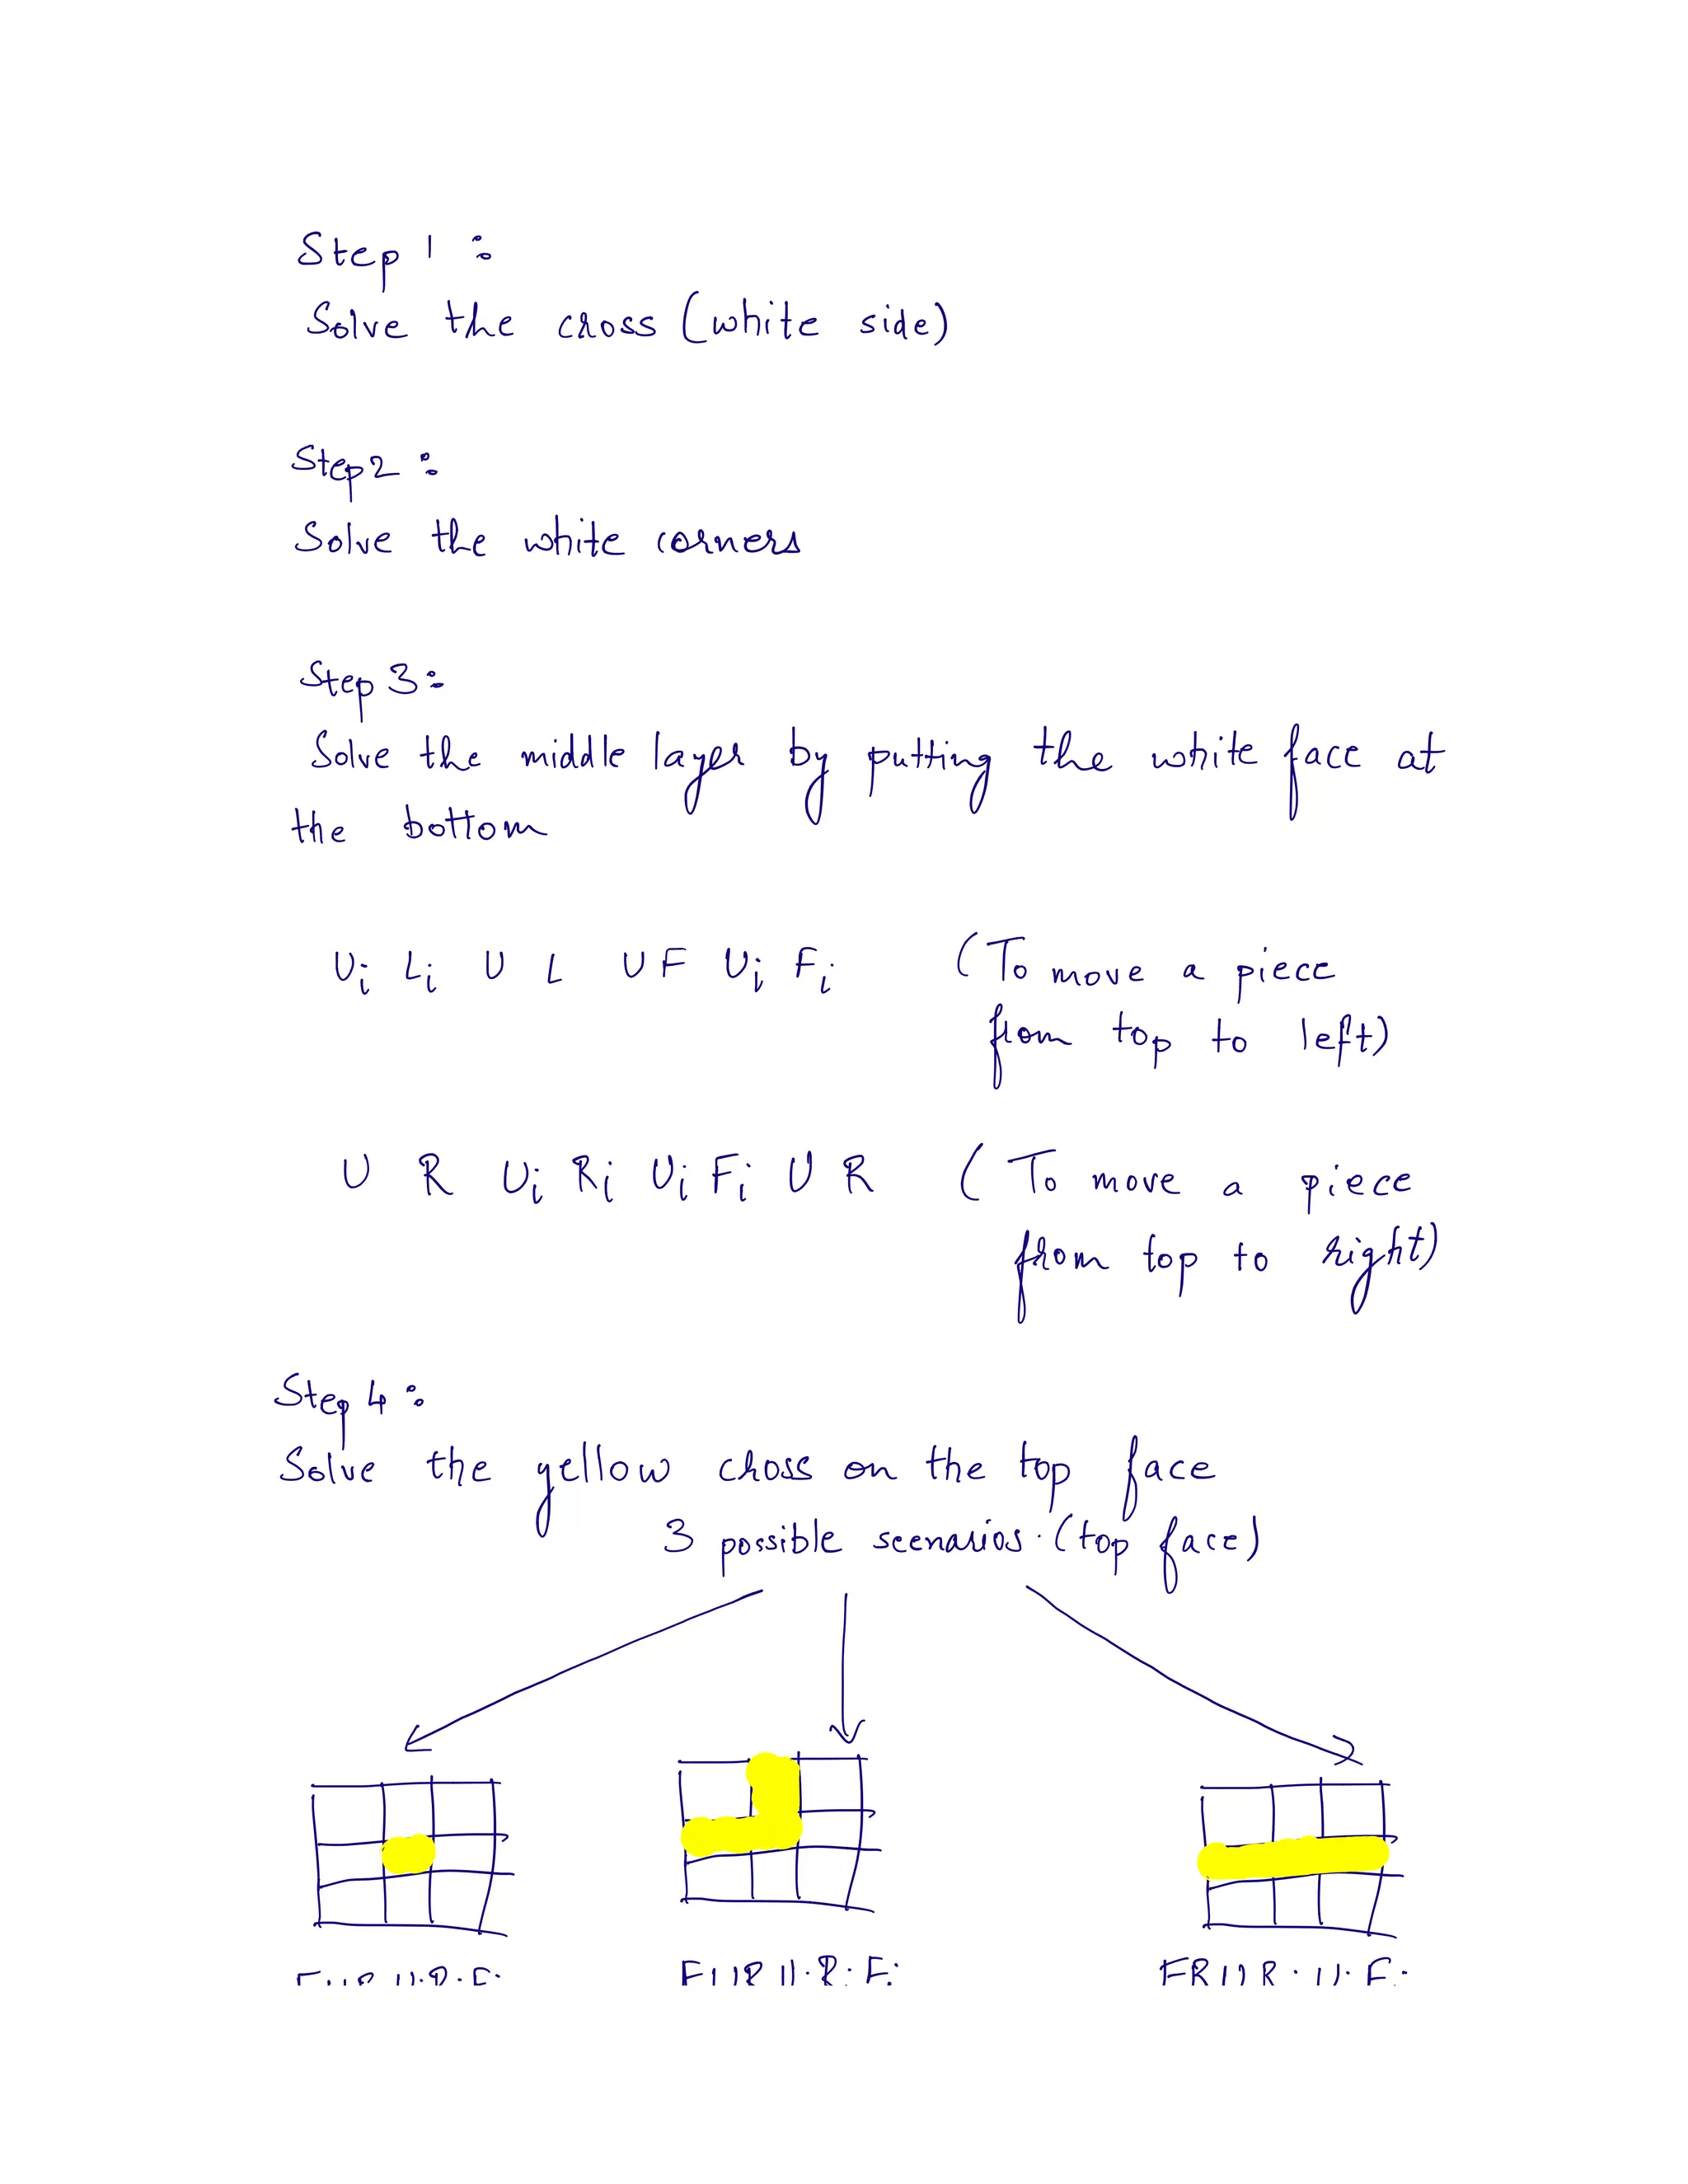 Step 1 :
Solve the cross (white side)
Step2 :
Solve the white corners
Step 3:
Solve the middle layer by putting the white face at
the bottom
Ui Li U L U F Ui Fi (To move a piece
from top to left)
U R Ui Ri Ui Fi U R (To move a piece
from top to right)
Step 4 :
Solve the yellow cross on the top face
3 possible scenarios. (top face)